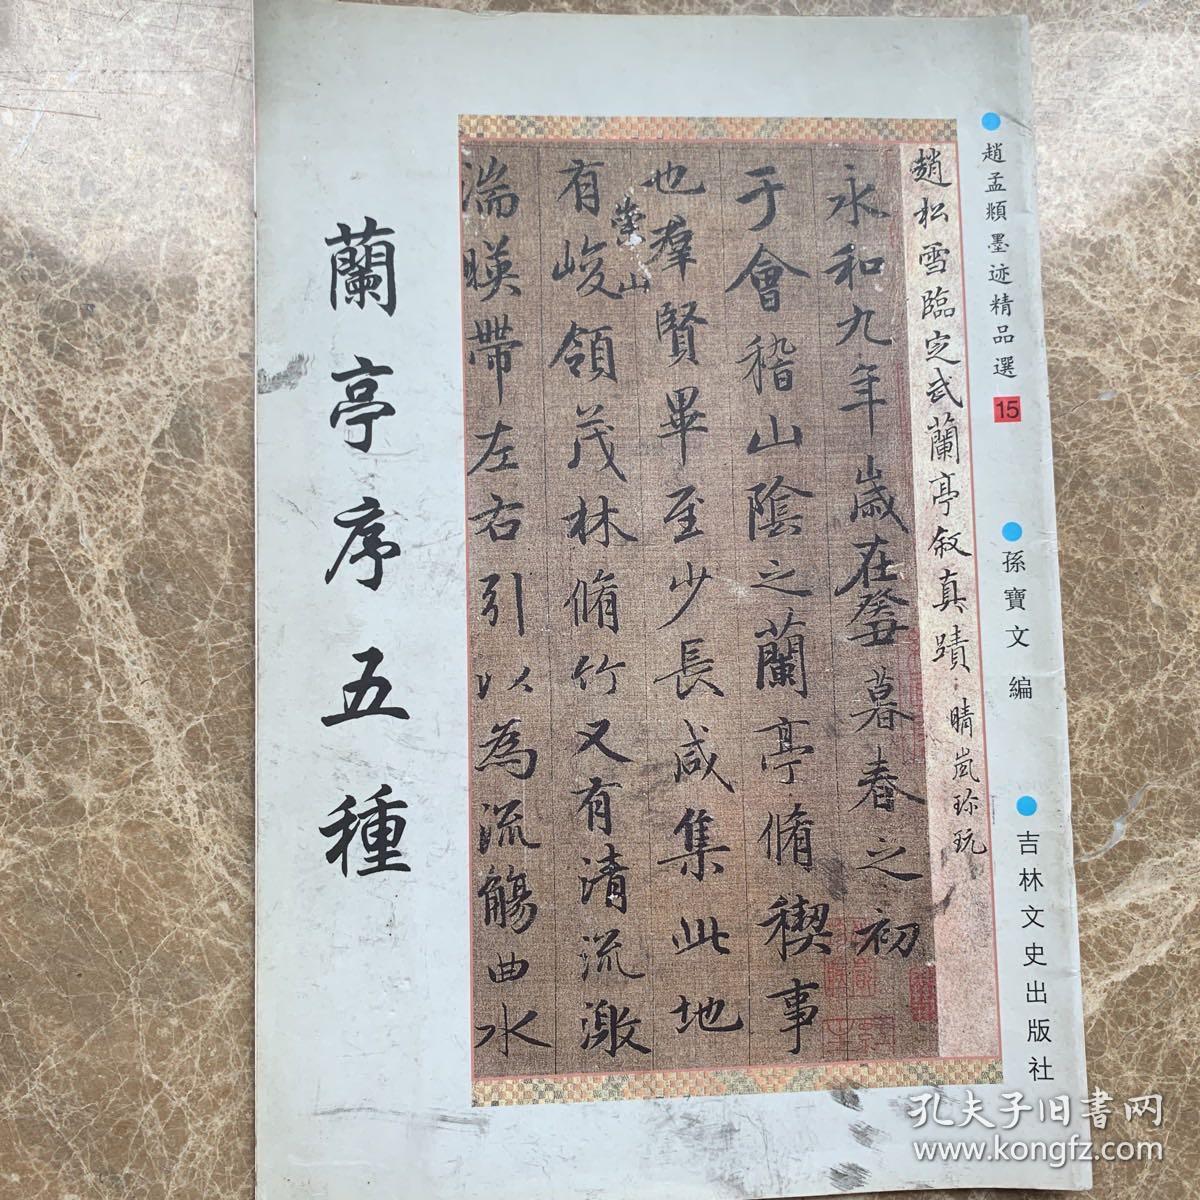 趙孟頫墨迹精品選 15
孫寶文 編
吉林文史出版社
趙松雪臨定武蘭亭敘真蹟 晴嵐珎玩
永和九年歲在癸丑暮春之初
于會稽山陰之蘭亭脩稧事
也羣賢畢至少長咸集此地
有崇山峻領茂林脩竹又有清流激
湍暎帶左右引以為流觴曲水
蘭亭序五種
孔夫子旧書网
www.kongfz.com